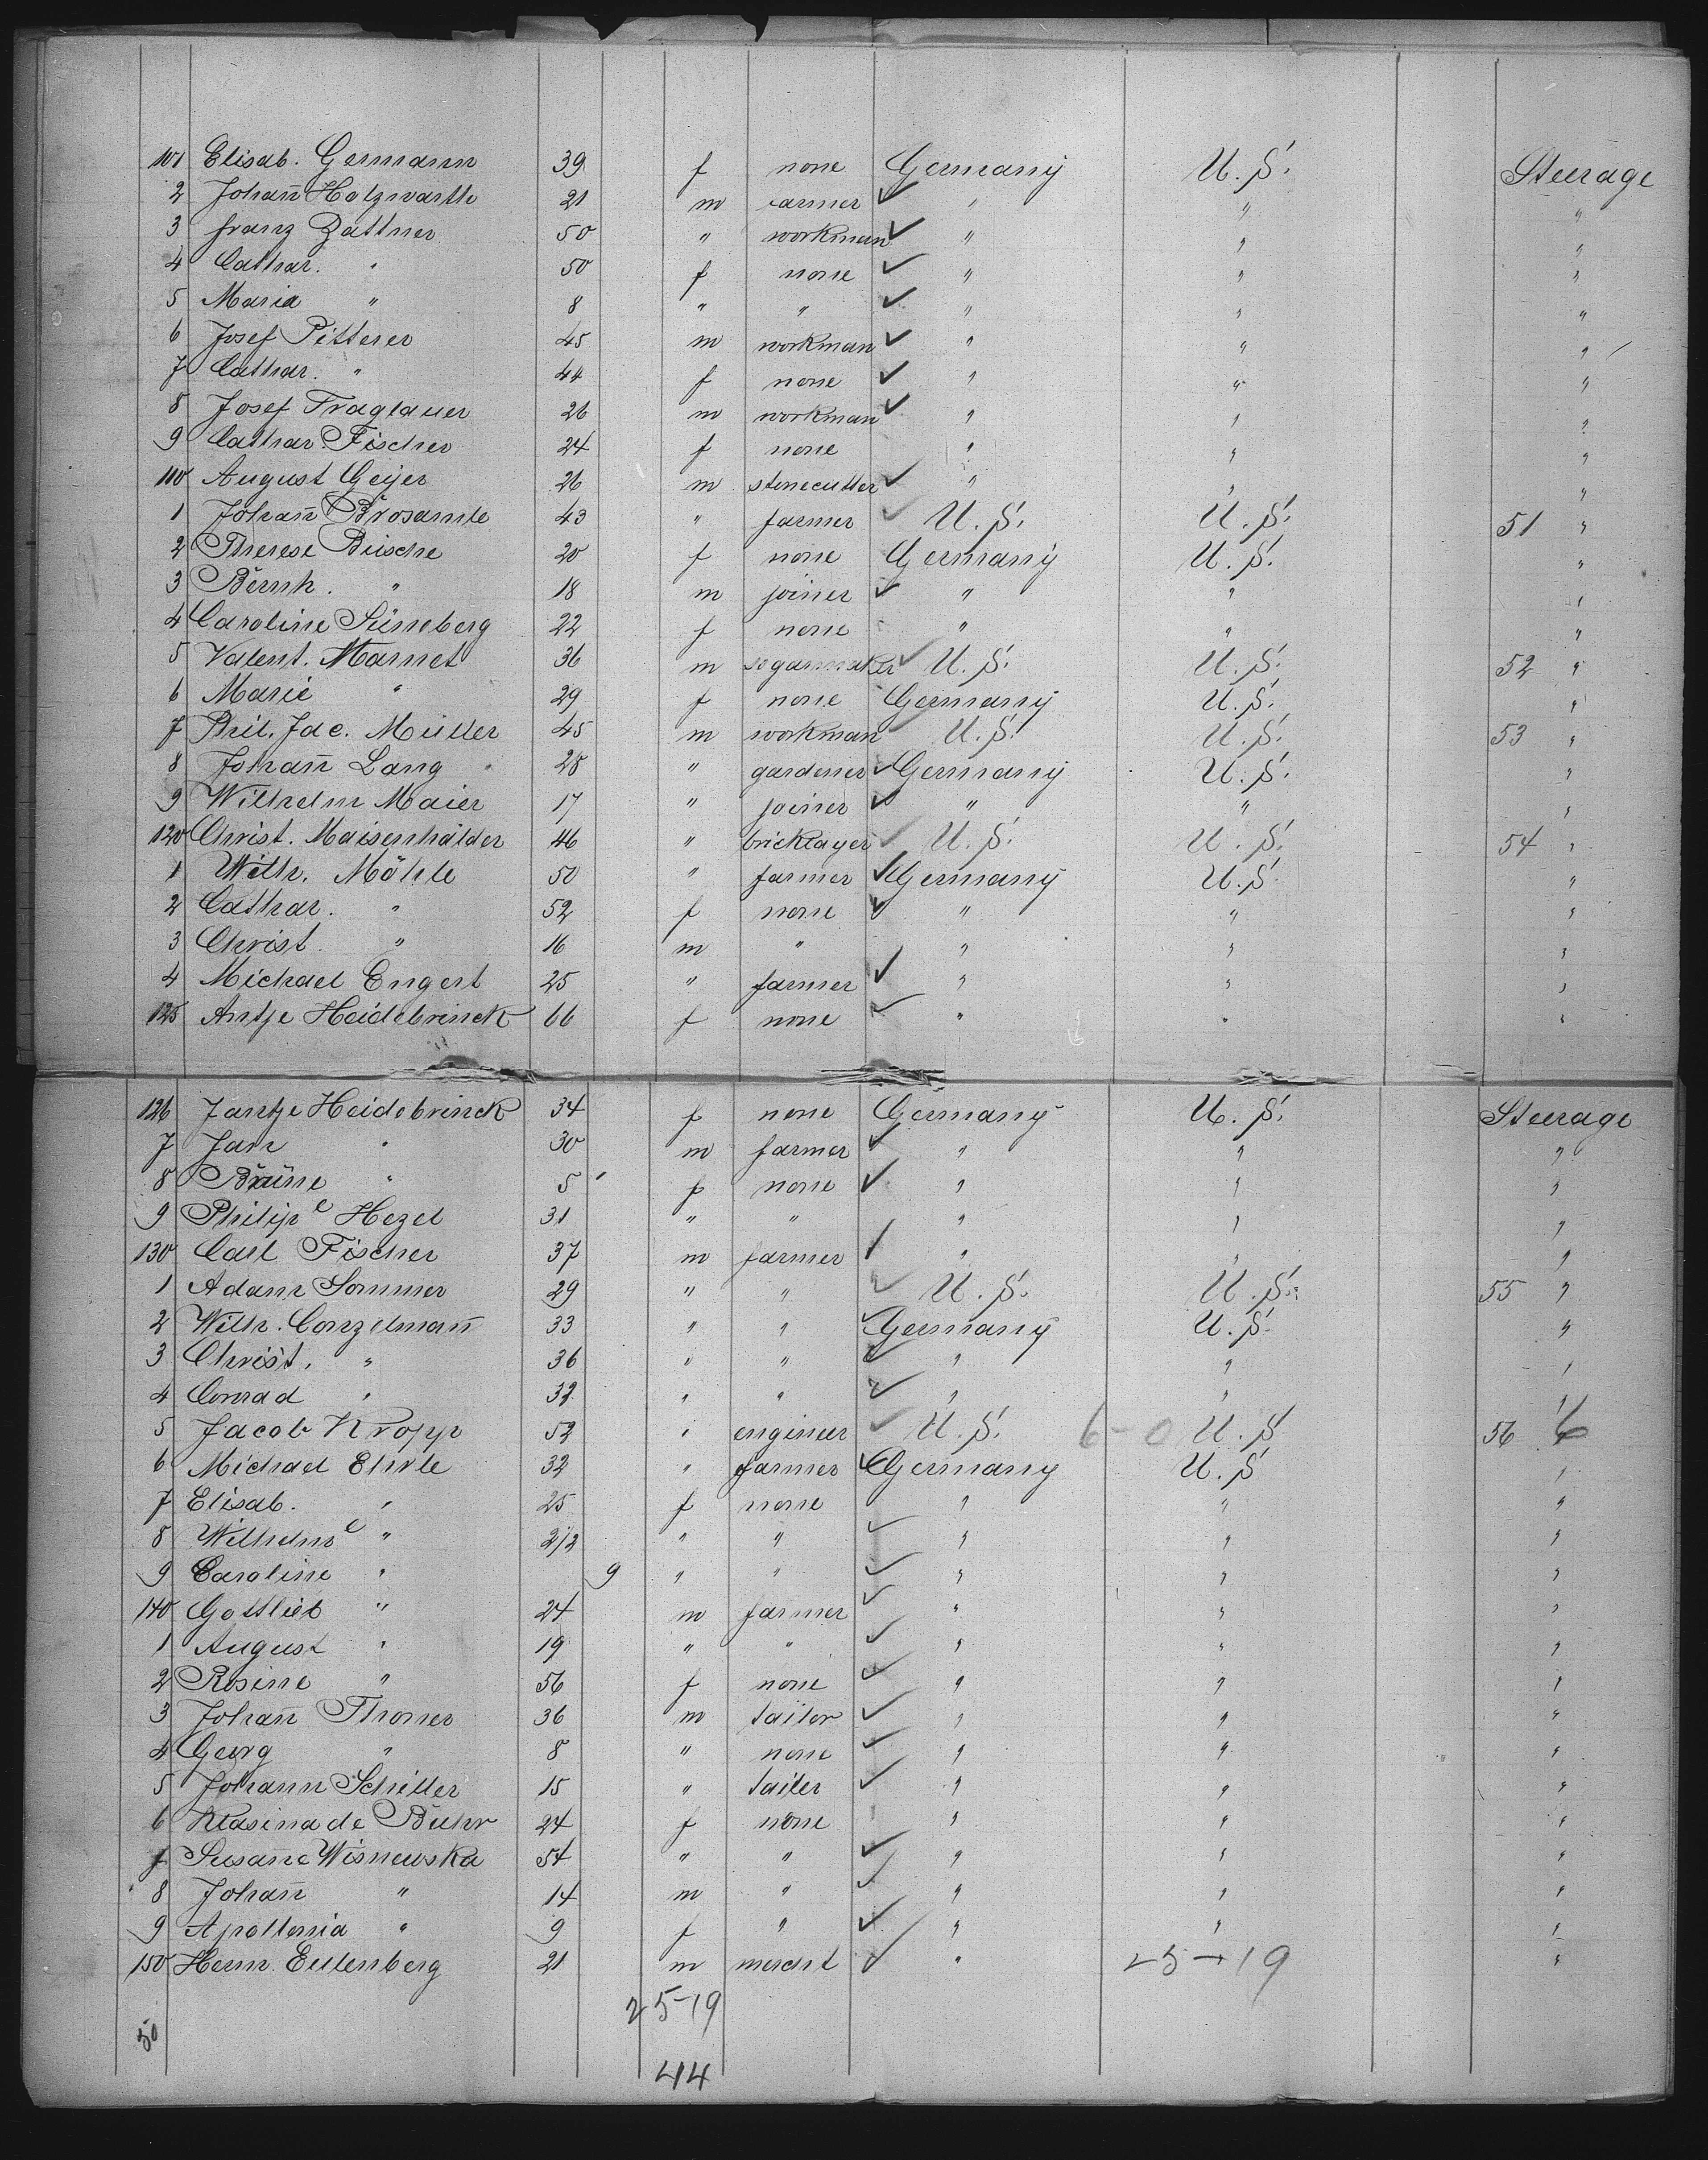 101 Elisab. Germann 39 f none Germany U.S. Steerage
2 Johan̅ Holzwarth 21 m farmer ✓ " " "
3 Franz Zattner 50 " workman ✓ " " "
4 Cathar. " 50 f none ✓ " " "
5 Maria " 8 " " ✓ " " "
6 Josef Pitterer 45 m workman ✓ " " "
7 Cathar. " 44 f none ✓ " " "
8 Josef Traglauer 26 m workman ✓ " " "
9 Cathar. Fischer 24 f none " " "
110 August Geijer 26 m stonecutter ✓ " " "
1 Johan̅ Brosamle 43 " farmer ✓ U.S. U.S. 51 "
2 Therese Büsche 20 f none Germany U.S. "
3 Bernh. " 18 m joiner ✓ " " "
4 Caroline Süneberg 22 f none " " "
5 Valent. Marnet 36 m segarmaker ✓ U.S. U.S. 52 "
6 Marie " 29 f none Germany U.S. "
7 Phil. Jac. Müller 45 m workman U.S. U.S. 53 "
8 Johan̅ Lang 28 " gardener ✓ Germany U.S. "
9 Wilhelm Maier 17 " joiner ✓ " " "
120 Christ. Maisenhälder 46 " bricklayer ✓ U.S. U.S. 54 "
1 Wilh. Möhle 50 " farmer ✓ Germany U.S. "
2 Cathar. " 52 f none ✓ " " "
3 Christ. " 16 m " " " "
4 Michael Engert 25 " farmer ✓ " " "
125 Antje Heidebrinck 66 f none ✓ " " "
126 Jantje Heidebrinck 34 f none Germany U.S. Steerage
7 Jan " 30 m farmer ✓ " " "
8 Brüne " 5 f none ✓ " " "
9 Philipe Hezel 31 " " " " "
130 Carl Fischer 37 m farmer ✓ " " "
1 Adam Sommer 29 " " ✓ U.S. U.S. 55 "
2 Wilh. Conzelman̅ 33 " " ✓ Germany U.S. "
3 Christ. " 36 " " ✓ " " "
4 Conrad " 32 " " ✓ " " "
5 Jacob Kropp 52 " engineer ✓ U.S. 6-0 U.S. 56 6
6 Michael Ehrle 32 " farmer ✓ Germany U.S. "
7 Elisab. " 25 f none " " "
8 Wilhelme " 2 1/2 " " ✓ " " "
9 Caroline " 9 " " ✓ " " "
140 Gottlieb " 24 m farmer ✓ " " "
1 August " 19 " " ✓ " " "
2 Rosine " 56 f none ✓ " " "
3 Johan̅ Thoner 36 m tailor ✓ " " "
4 Georg " 8 " none ✓ " " "
5 Johann Schiller 15 " tailer ✓ " " "
6 Klasina de Buhr 24 f none " " "
7 Susan̅e Wisnewska 54 " " ✓ " " "
8 Johan̅ " 14 m " ✓ " " "
9 Apollonia " 9 f " ✓ " " "
150 Herm. Eulenberg 21 m mercht ✓ " 25-19 "
25-19
50
44